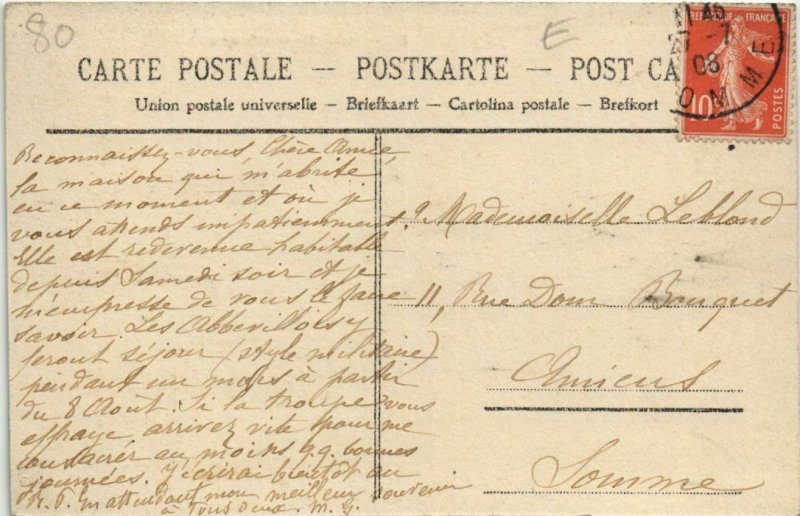 80
E
CARTE POSTALE — POSTKARTE — POST CA
Union postale universelle — Briefkaart — Cartolina postale — Brefkort
REPUBLIQUE FRANÇAISE
10
POSTES
11 45
-7
08
OMME
Reconnaissez-vous, Chère Amie,
la maison qui m'abrite
en ce moment et où je
vous attends impatiemment?
Elle est redevenue habitable
depuis Samedi soir et je
m'empresse de vous le faire
savoir. Les Abbevillois y
feront séjour (style militaire)
pendant un mois à partir
du 8 Août. Si la troupe vous
effraye arrivez vite pour me
consacrer au moins qq. bonnes
journées. J'écrirai bientôt au
R. P. m'attendant mon meilleur souvenir
à tous deux. M. G.
Mademoiselle Leblond
11, Rue Dom Bouquet
Amiens
Somme